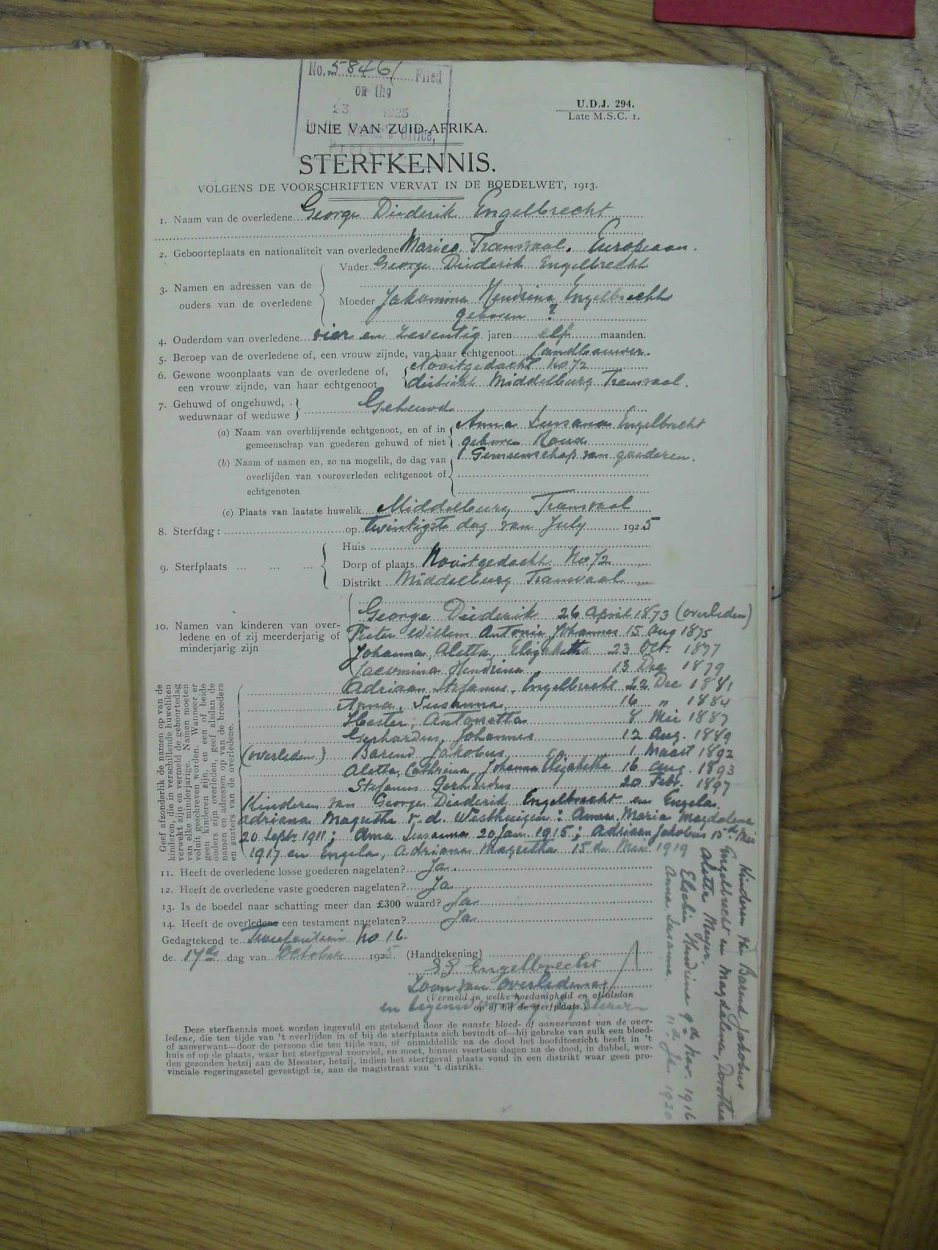 No. 58461 Filed
on the
23 1925
U.D.J. 294.
Late M.S.C. 1.
UNIE VAN ZUID-AFRIKA.
Office,
STERFKENNIS.
VOLGENS DE VOORSCHRIFTEN VERVAT IN DE BOEDELWET, 1913.
1. Naam van de overledene George Diederik Engelbrecht
2. Geboorteplaats en nationaliteit van overledene Marico Transvaal. Europeaan.
3. Namen en adressen van de ouders van de overledene
Vader George Diederik Engelbrecht
Moeder Jakomina Hendrina Engelbrecht
geboren ?
4. Ouderdom van overledene vier en zeventig jaren elf maanden.
5. Beroep van de overledene of, een vrouw zijnde, van haar echtgenoot landbouwer.
6. Gewone woonplaats van de overledene of, een vrouw zijnde, van haar echtgenoot
Nooitgedacht No 72
distrikt Middelburg Transvaal.
7. Gehuwd of ongehuwd, weduwnaar of weduwe Gehuwd
(a) Naam van overblijvende echtgenoot, en of in gemeenschap van goederen gehuwd of niet
Anna Susanna Engelbrecht
geboren
Gemeenschap van goederen.
(b) Naam of namen en, zo na mogelik, de dag van overlijden van vooroverleden echtgenoot of echtgenoten
(c) Plaats van laatste huwelik Middelburg Transvaal
8. Sterfdag : op twintigste dag van July 1925
9. Sterfplaats ... ... ...
Huis
Dorp of plaats Nooitgedacht No 72
Distrikt Middelburg Transvaal
10. Namen van kinderen van overledene en of zij meerderjarig of minderjarig zijn
George Diederik 26 April 1873 (overleden)
Pieter Willem Antonie Johannes 15 Aug 1875
Johanna, Aletta, Elizabeth 23 Oct. 1877
Jacomina Hendrina 13 Dec 1879
Adriaan Stefanus, Engelbrecht 22 Dec 1881
Anna, Susanna 16 " 1884
Hester, Antonetta 8 Mei 1887
Gerhardus, Johannes 12 Aug. 1889
(overleden) Barend Jakobus 1 Maart 1892
Aletta, Cathrina, Johanna Elizabetha 16 Aug. 1893
Stefanus Gerhardus 20 Feb. 1897
Geef afzonderlik de namen op van de kinderen, die in verschillende huweliken verwekt zijn en vermeld de geboortedag van elke minderjarige. Namen moeten voluit geschreven worden. Wanneer er geen kinderen zijn, en een of beide ouders zijn overleden, geef alsdan de namen en adressen op van de broeders en zusters van de overledene.
Kinderen van George Diederik Engelbrecht en Engela
Adriana Magritha v. d. Westhuizen : Anna Maria Magdalena
20 Sept. 1911; Anna Susanna 20 Jan. 1915; Adriaan Jakobus 15de Mei
1917 en Engela, Adriana Magretha 15 de Mei 1919
Kinderen van Barend Jakobus
Engelbrecht en Magdalena, Dorothea
Aletta Meyer.
Hendrina 9de Nov 1916
Anna Susanna 1920
11. Heeft de overledene losse goederen nagelaten? Ja.
12. Heeft de overledene vaste goederen nagelaten? Ja
13. Is de boedel naar schatting meer dan £300 waard? Ja
14. Heeft de overledene een testament nagelaten? Ja
Gedagtekend te Tweefontein No 16.
de 17de dag van October 1925. (Handtekening)
S G Engelbrecht
Zoon van Overledene
(Vermeld in welke hoedanigheid en of alsdan op of bij de sterfplaats.)
Deze sterfkennis moet worden ingevuld en getekend door de naaste bloed- of aanverwant van de overledene, die ten tijde van 't overlijden in of bij de sterfplaats zich bevindt of—bij gebreke van zulk een bloed- of aanverwant—door de persoon die ten tijde van, of onmiddellik na de dood het hoofdtoezicht heeft in 't huis of op de plaats, waar het sterfgeval voorviel, en moet, binnen veertien dagen na de dood, in dubbel, worden gezonden hetzij aan de Meester, hetzij, indien het sterfgeval plaats vond in een distrikt waar geen provinciale regeringszetel gevestigd is, aan de magistraat van 't distrikt.